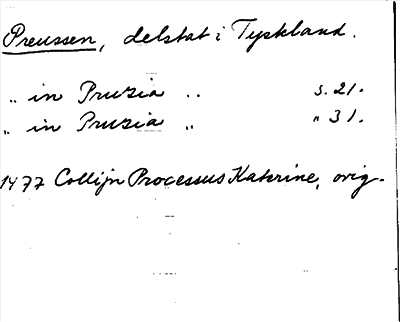 Preussen, delstat i Tyskland.
„ in Pruzia „ s. 21.
„ in Pruzia „ „ 31.
1477 Collijn Processus Katerine, orig.